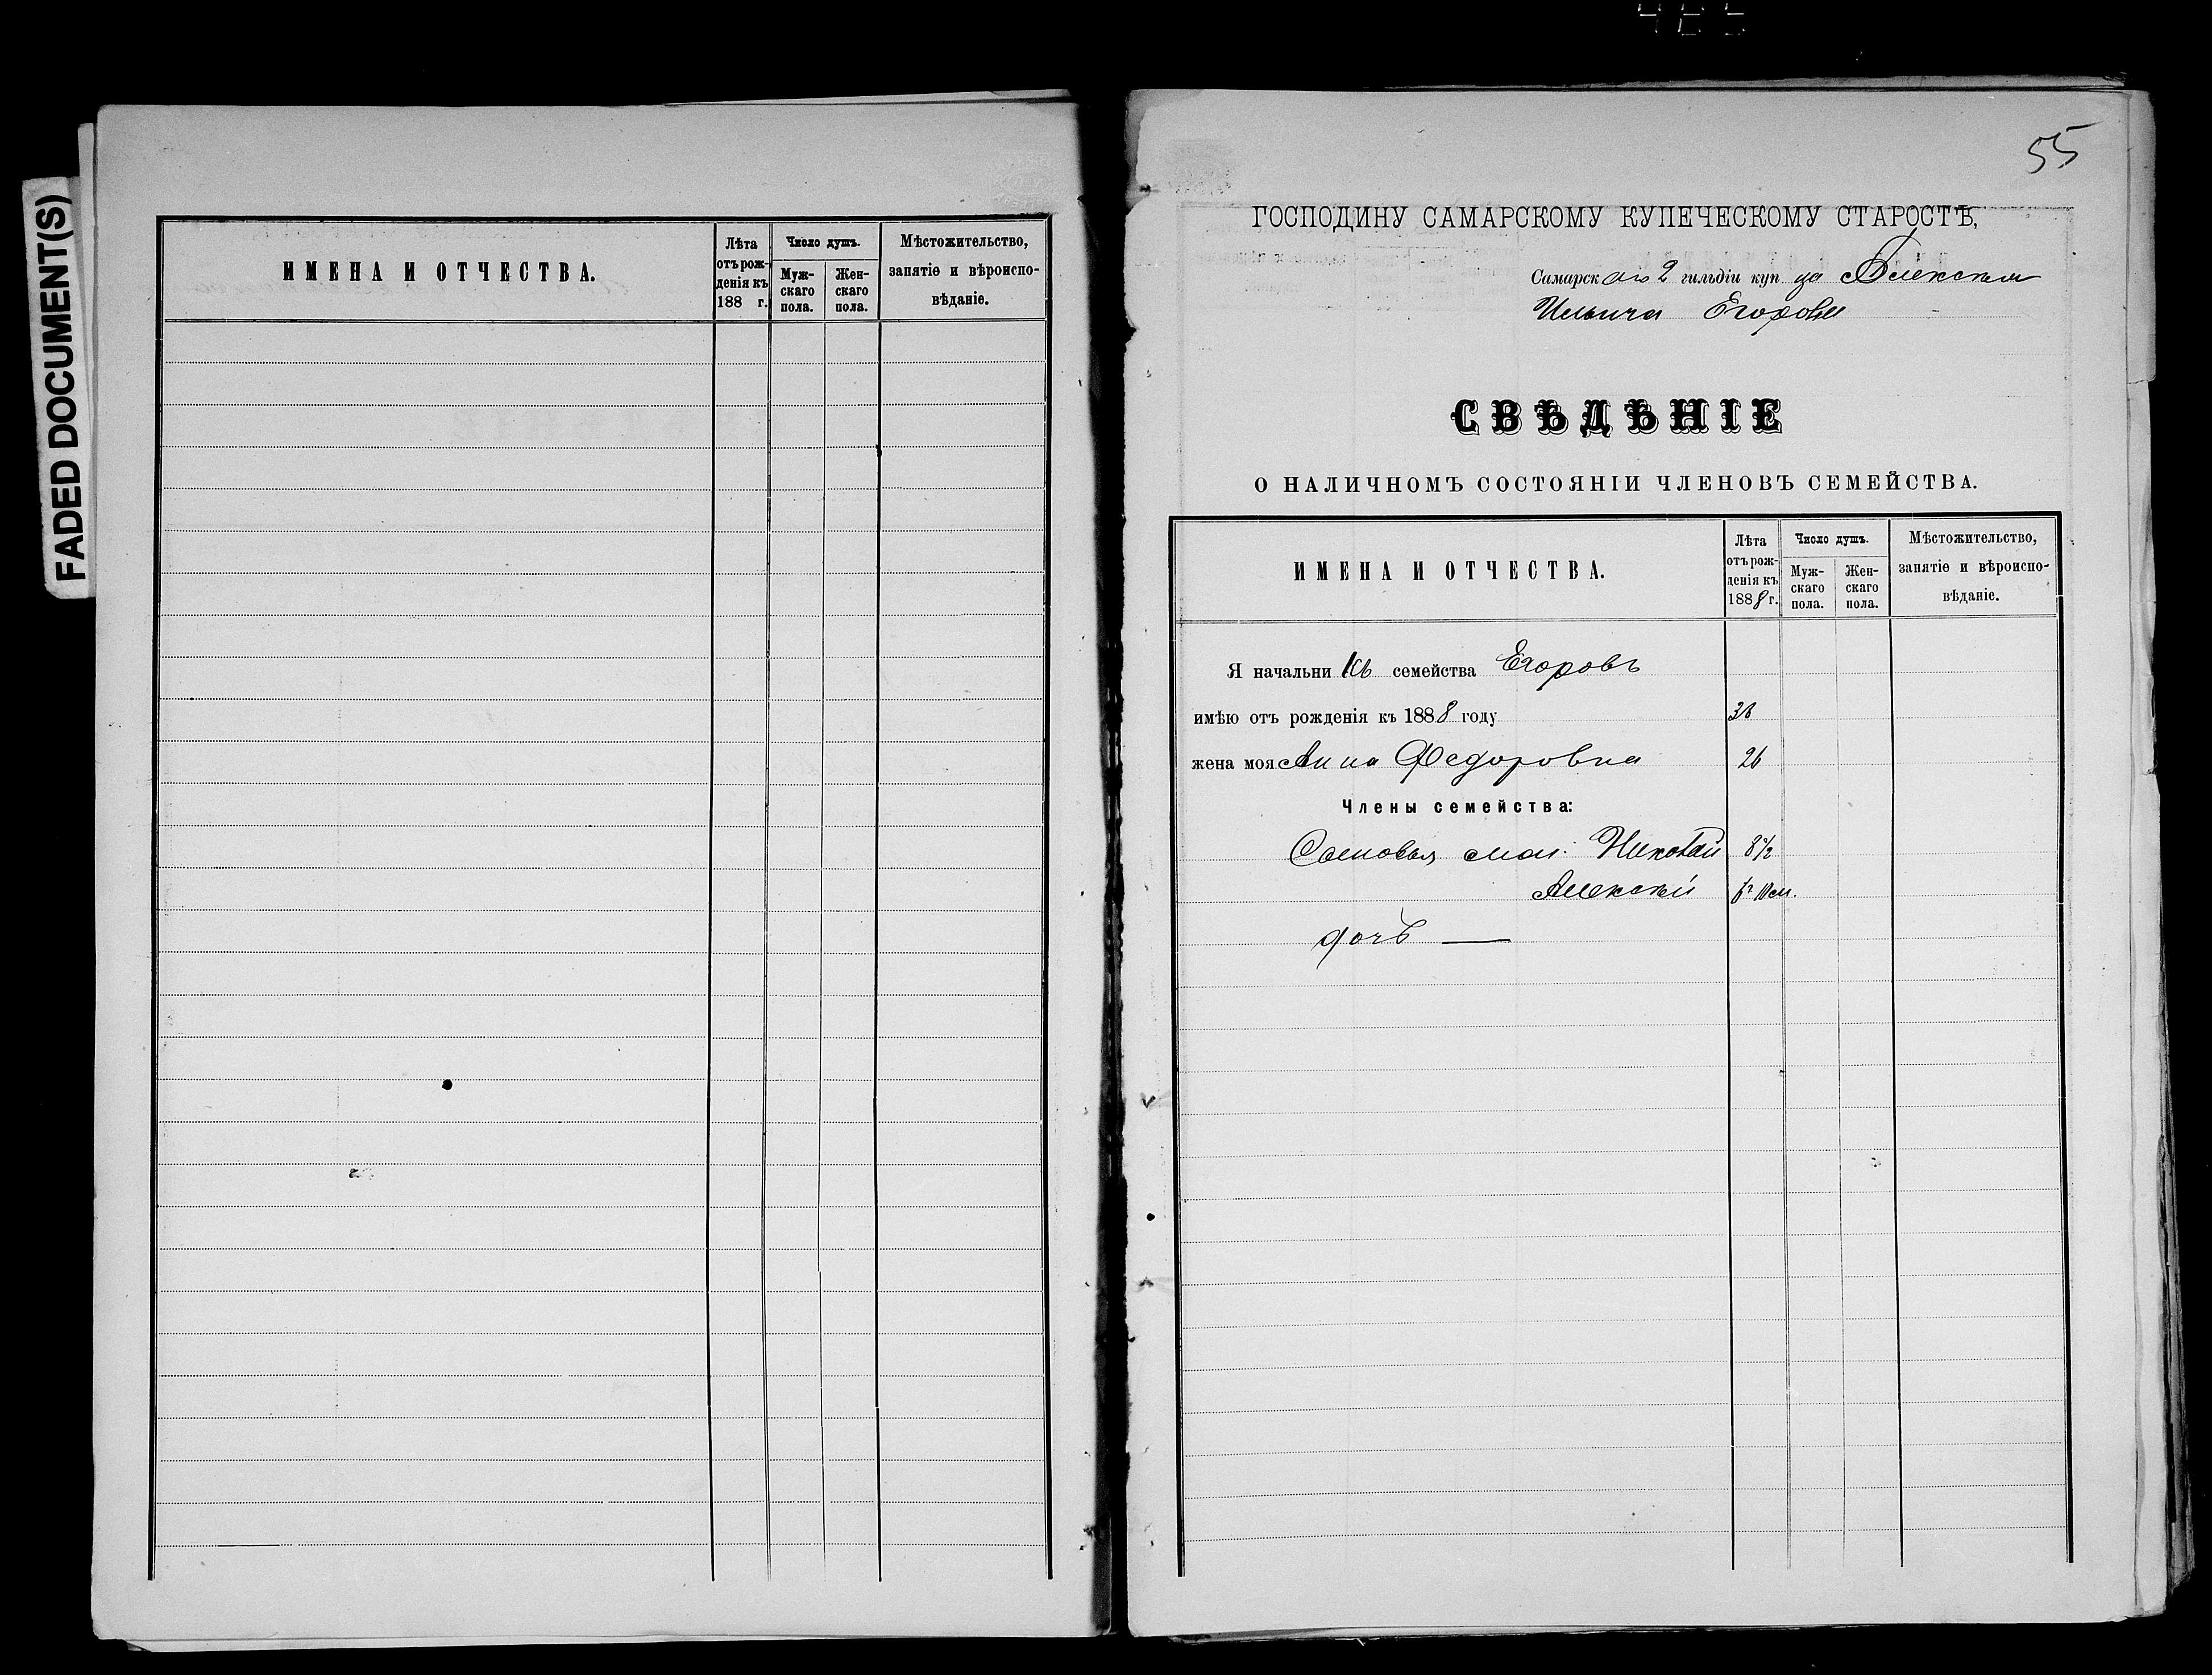 FADED DOCUMENT(S)
ИМЕНА И ОТЧЕСТВА.
Лѣта
отърож-
денія къ
188 г.
Число душъ.
Муж-
скаго
пола.
Жен-
скаго
пола.
Мѣстожительство,
занятіе и вѣроиспо-
вѣданіе.
55
ГОСПОДИНУ САМАРСКОМУ КУПЕЧЕСКОМУ СТАРОСТѢ,
Самарскаго 2 гильдіи куп ца Алексѣя
Ильича Егорова
СВѢДѢНІЕ
О НАЛИЧНОМЪ СОСТОЯНІИ ЧЛЕНОВЪ СЕМЕЙСТВА.
ИМЕНА И ОТЧЕСТВА.
Лѣта
отърож-
денія къ
1888 г.
Число душъ.
Муж-
скаго
пола.
Жен-
скаго
пола.
Мѣстожительство,
занятіе и вѣроиспо-
вѣданіе.
Я начальникъ семейства Егоровъ
имѣю отъ рожденія къ 1888 году
жена моя Анна Федоровна 26
Члены семейства:
Сыновья Николай 8 1/2
Алексѣй
дочь —